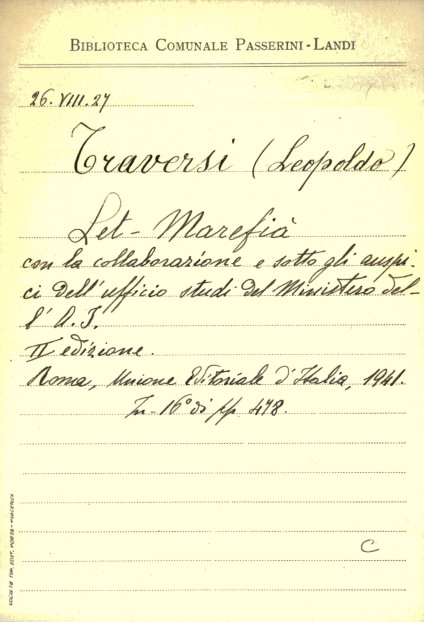 BIBLIOTECA COMUNALE PASSERINI-LANDI
26. VIII. 27
Traversi (Leopoldo)
Let-Marefià
con la collaborazione e sotto gli auspi-
ci dell'ufficio studi del Ministero del-
l' A. I.
II edizione.
Roma, Unione Editoriale d'Italia, 1941.
In-16° di pp 478.
C